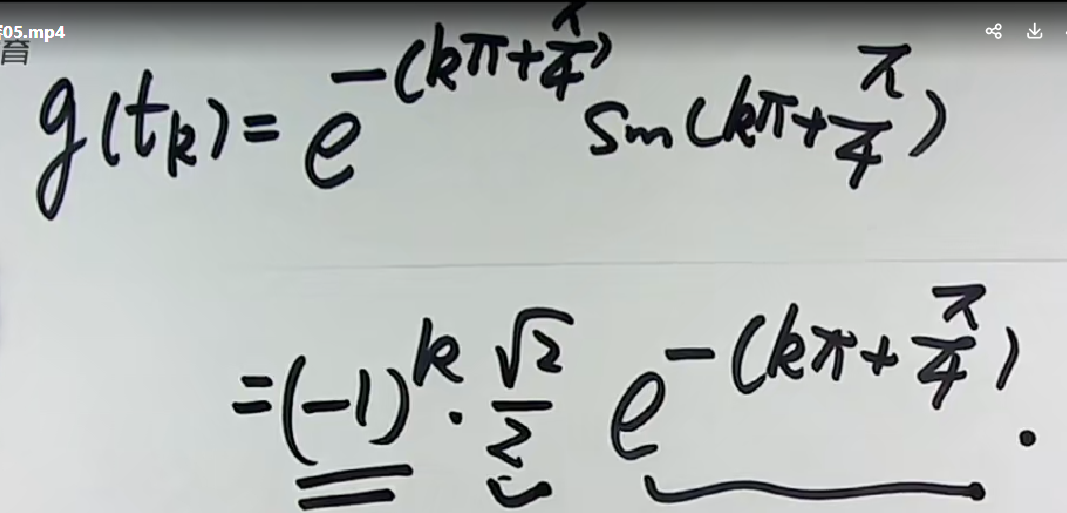 05.mp4
育
g(t_k) = e^{-(kπ+π/4)} sin(kπ+π/4)
= (-1)^k · √2/2 e^{-(kπ+π/4)}.